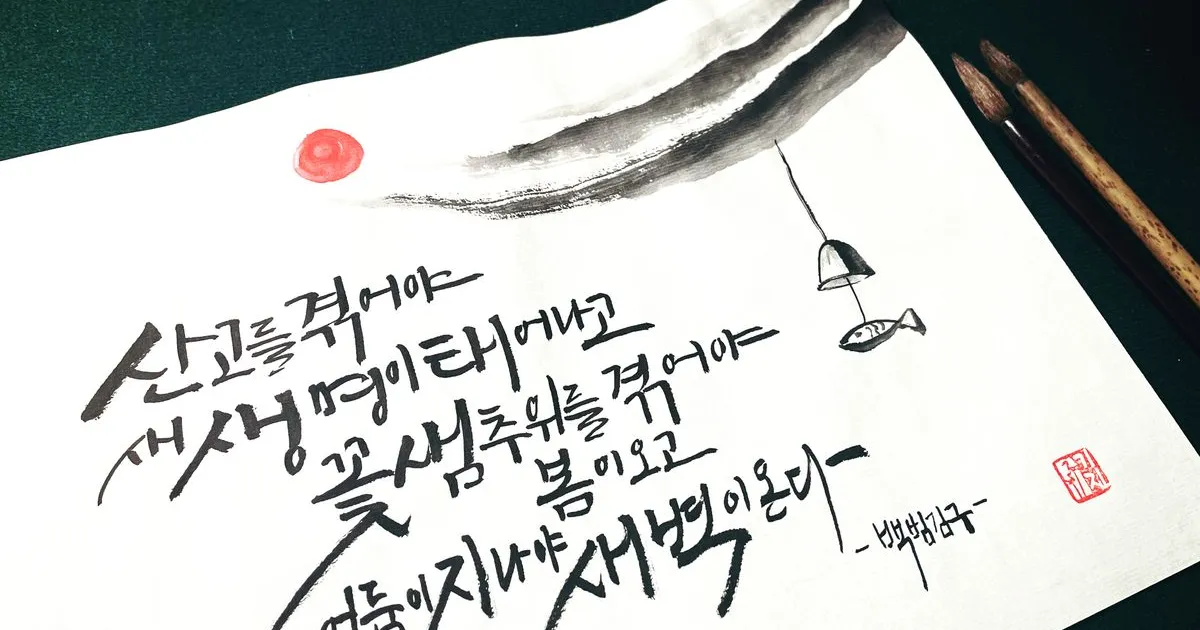 산고를 겪어야
새 생명이 태어나고
꽃샘추위를 겪어야
봄이 오고
어둠이 지나야 새벽이 온다
-백범김구-